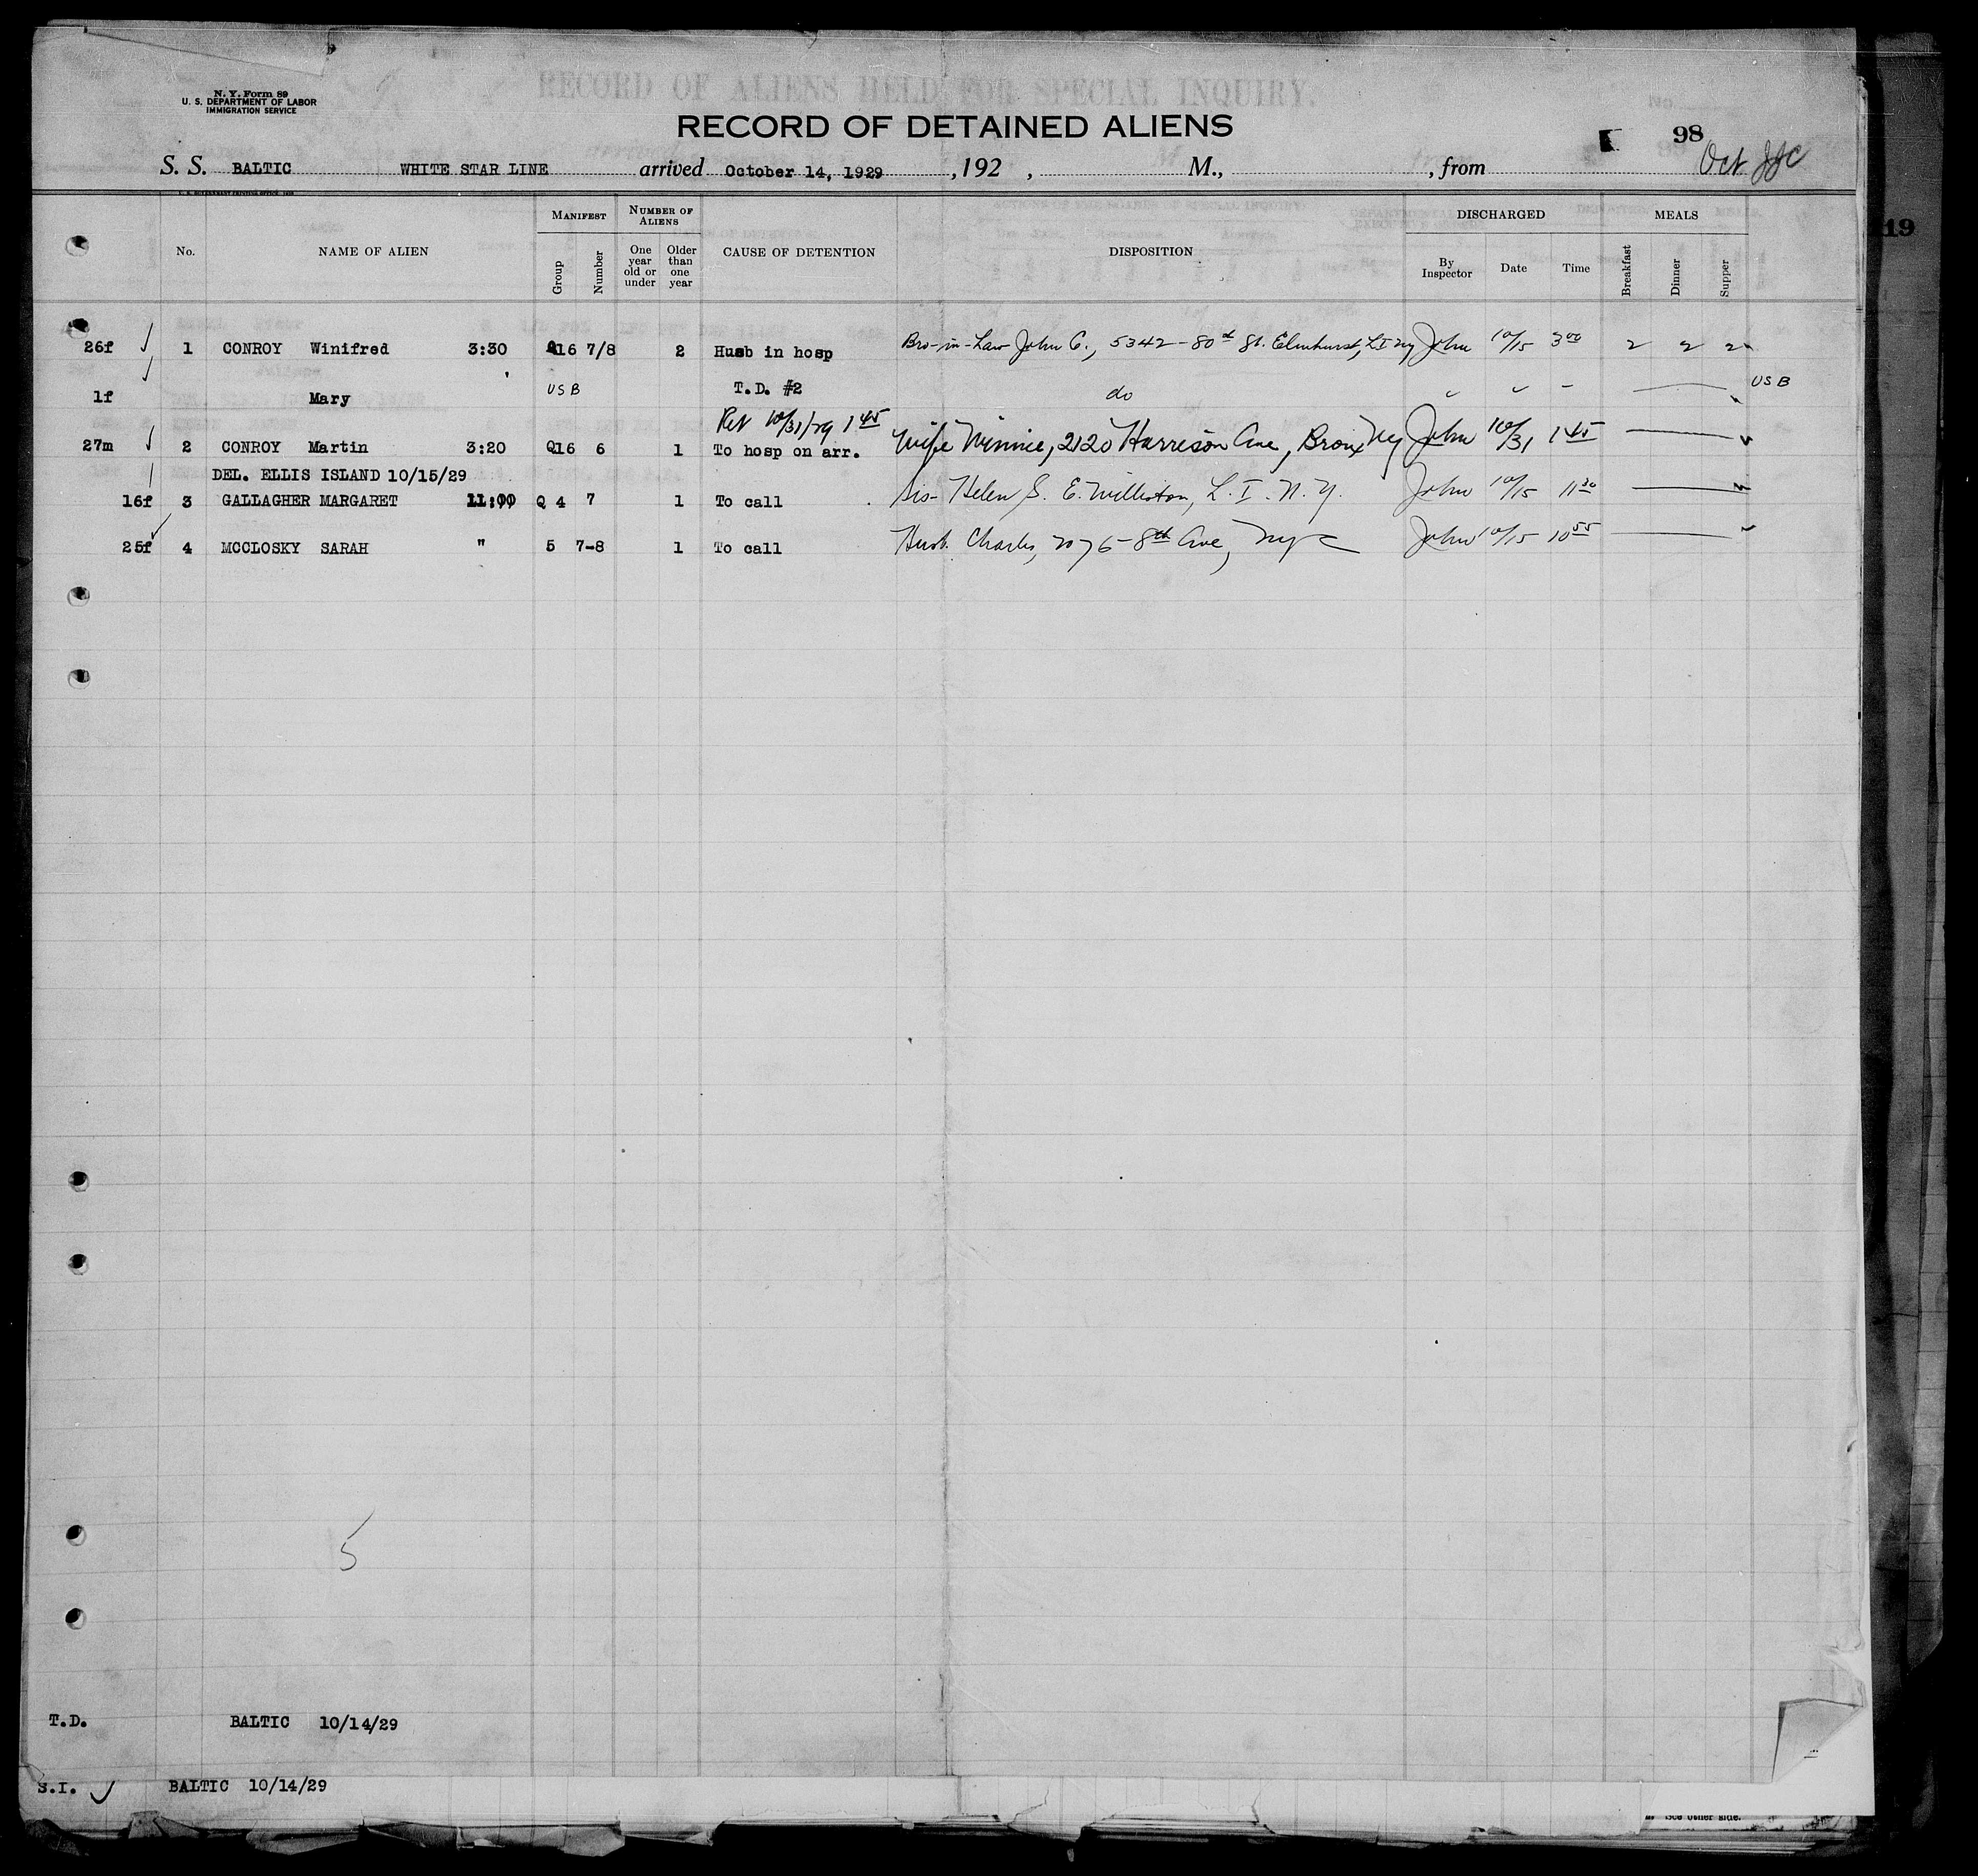 N. Y. Form 89
U. S. DEPARTMENT OF LABOR
IMMIGRATION SERVICE
RECORD OF ALIENS HELD FOR SPECIAL INQUIRY.
RECORD OF DETAINED ALIENS
98
S. S. BALTIC WHITE STAR LINE arrived October 14, 1929 , 192 , M., , from Oct
19
No. NAME OF ALIEN MANIFEST Group Number NUMBER OF ALIENS One year old or under Older than one year CAUSE OF DETENTION DISPOSITION DISCHARGED By Inspector Date Time MEALS Breakfast Dinner Supper
26f 1 CONROY Winifred 3:30 Q16 7/8 2 Husb in hosp Bro-in-Law John C., 5342-80th St. Elmhurst, L I NY John 10/15 3 00 2 2 2
1f Mary USB T.D. #2 do USB
Ret 10/31/29 1 45
27m 2 CONROY Martin 3:20 Q16 6 1 To hosp on arr. Wife Winnie, 2120 Harreison Ave, Bronx NY John 10/31 1 45
DEL. ELLIS ISLAND 10/15/29
16f 3 GALLAGHER MARGARET 11:00 Q 4 7 1 To call Sis- Helen G. E. Williston, L. I. N. Y. John 10/15 11 30
25f 4 MCCLOSKY SARAH " 5 7-8 1 To call Husb. Charles, 2076-8th Ave, NYC John 10/15 10 55
5
T.D. BALTIC 10/14/29
S.I. BALTIC 10/14/29
See other side.